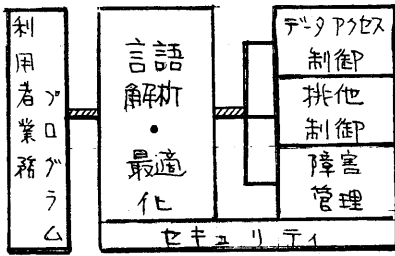 利用者業務
プログラム
言語
解析
・
最適
化
データアクセス
制御
排他
制御
障害
管理
セキュリティ